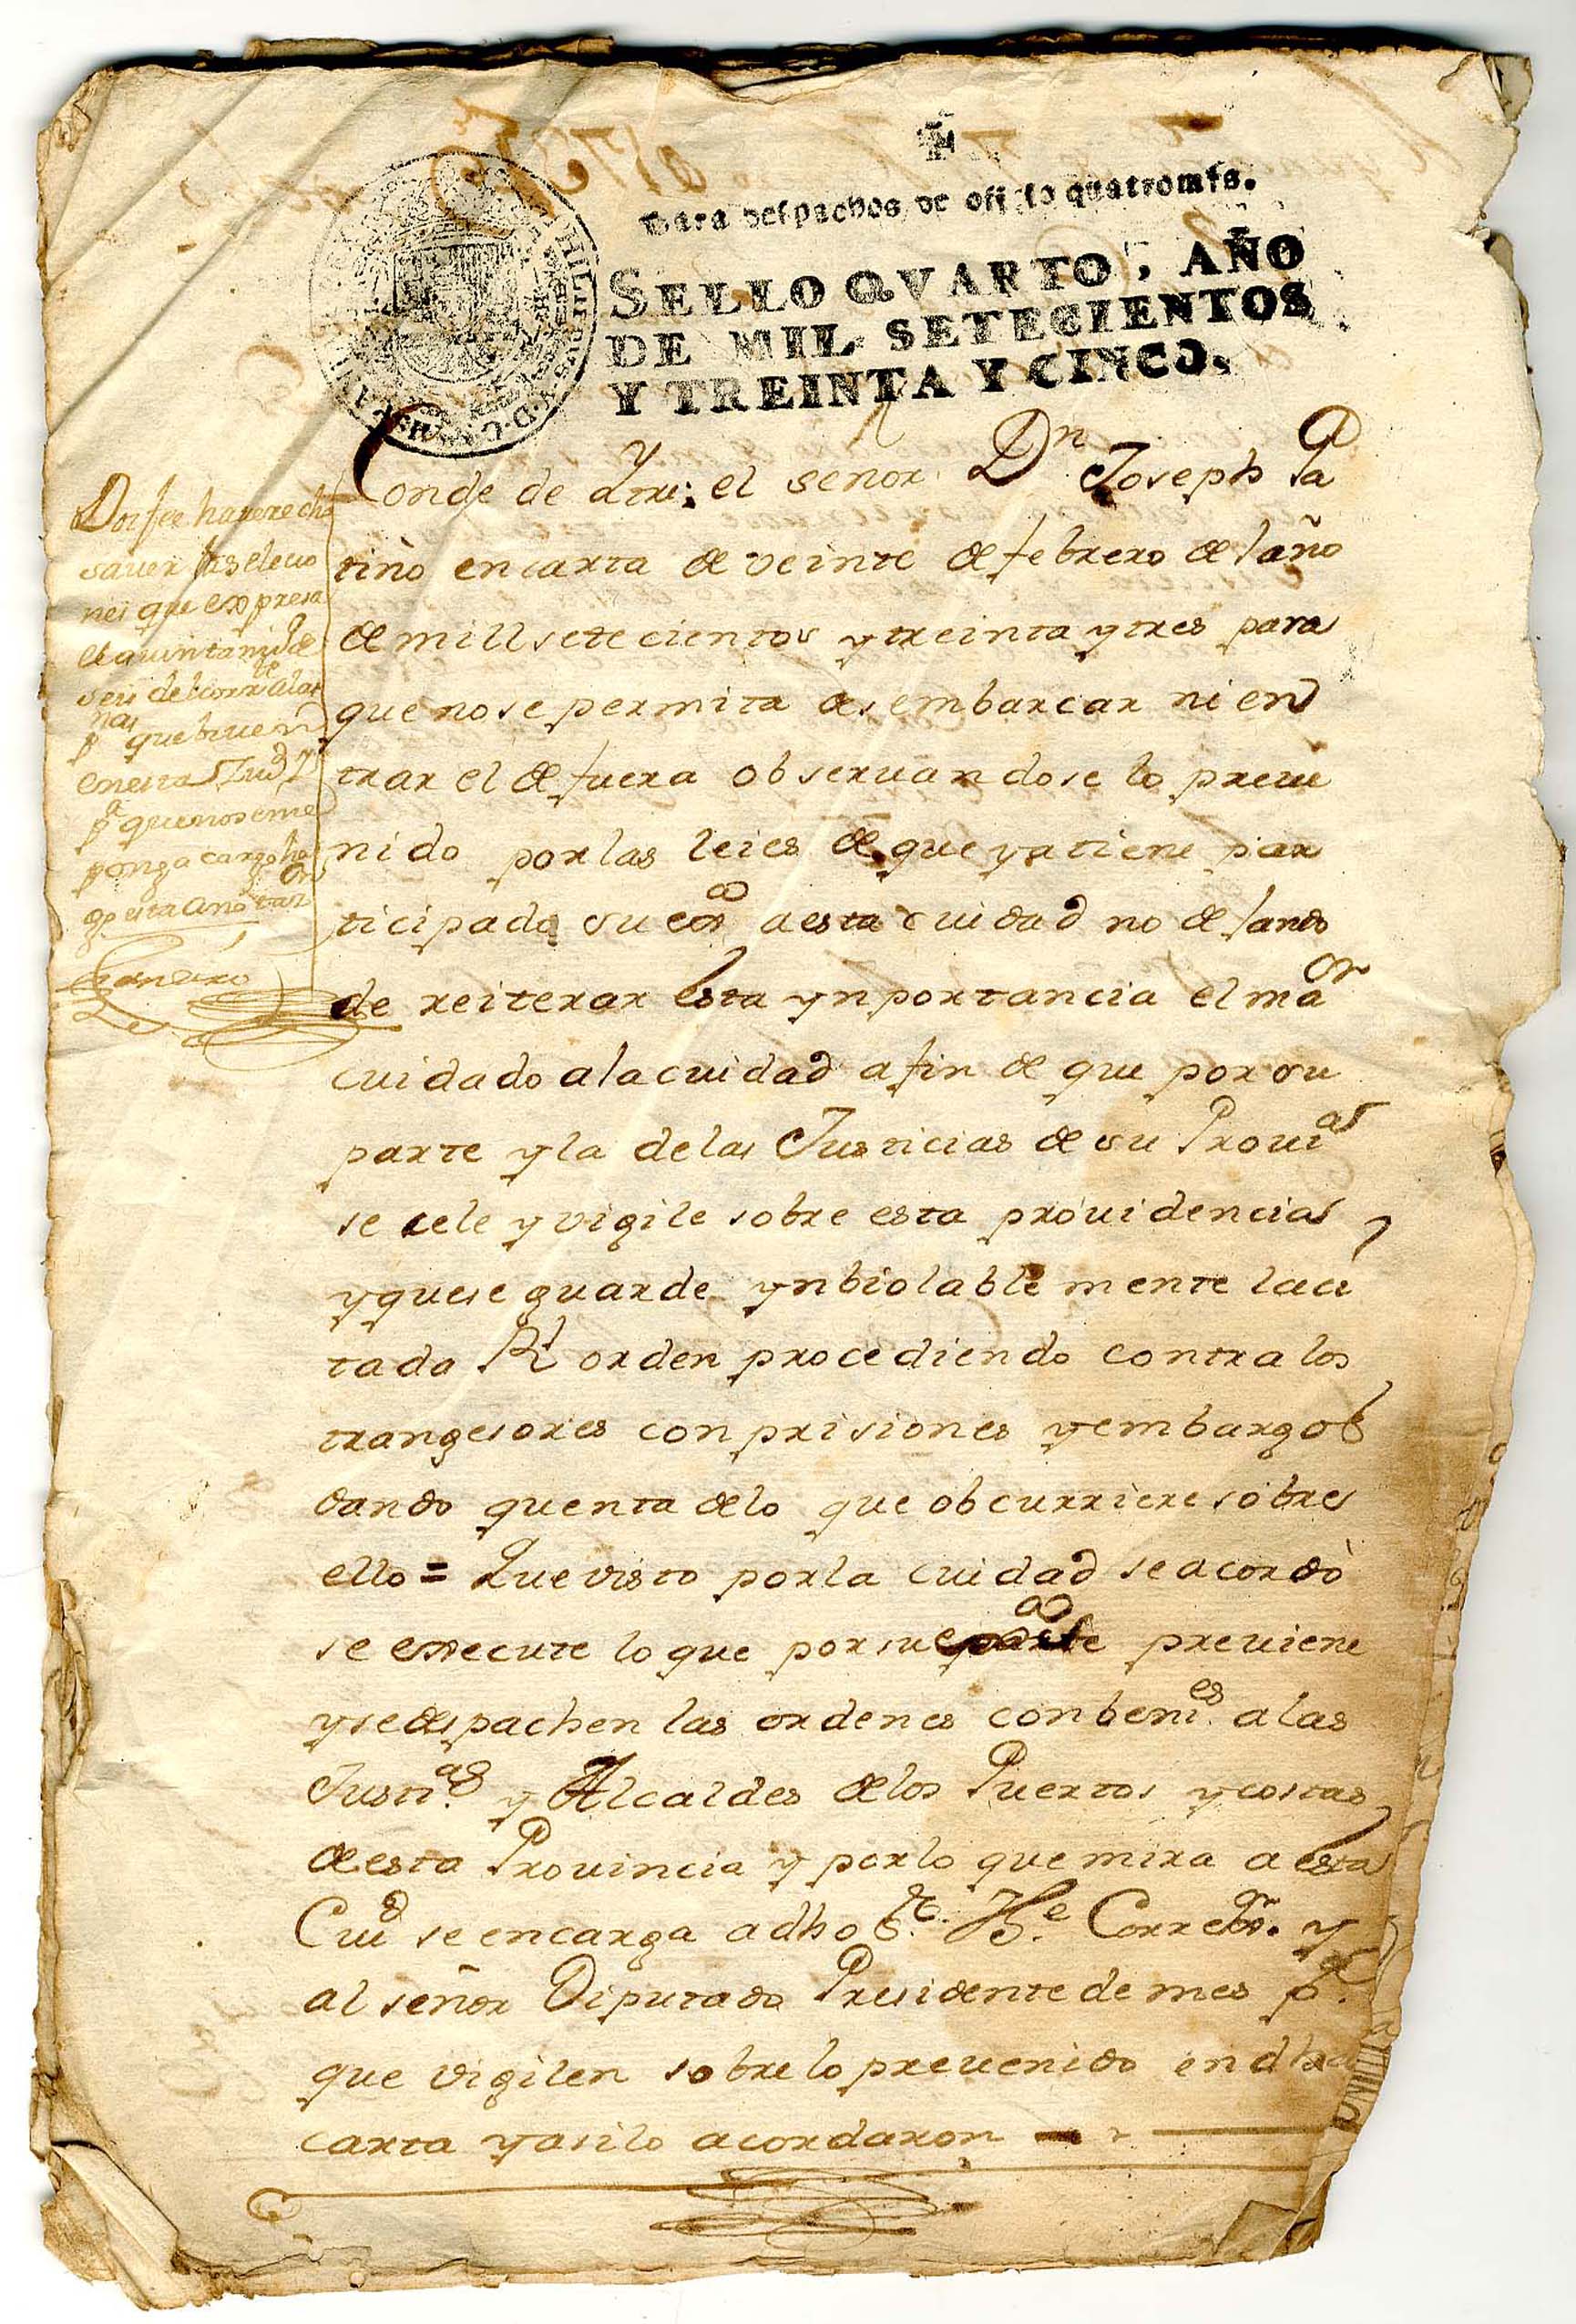 Para despachos de officio quatro mrs.
SELLO QVARTO, AÑO
DE MIL SETECIENTOS
Y TREINTA Y CINCO.
Conde de Ytre; el señor Dn Joseph Pa
tiño en carta de veinte de febrero del año
de mill setecientos y treinta y tres para
que no se permita desembarcar ni en
trar el de fuera observandose lo preve
nido por las leies de que ya tiene par
ticipado su exa a esta ciudad no dejando
de reiterar esta ynportancia el maor
cuidado a la ciudad a fin de que por su
parte y la de las Justicias de su Provias
se cele y vigile sobre esta providencia
y que se guarde ynbiolablemente la ci
tada Rl orden procediendo contra los
trangesores con prisiones y embargos
dando quenta de lo que obcurriere sobre
ello = Que visto por la ciudad se acordò
se execute lo que por su parte previene
y se despachen las ordenes conbenies a las
Justias y Alcaldes de los Puertos y costas
de esta Provincia y por lo que mira a esta
Ciud se encarga a dho Sr. The. Corregor. y
al señor Diputado Presidente de mes pa.
que vigilen sobre lo prevenido en dha
carta y asi lo acordaron
Doi fee haver echo
saver las elecio
nes que expresa
pa que no se me
ponga cargo